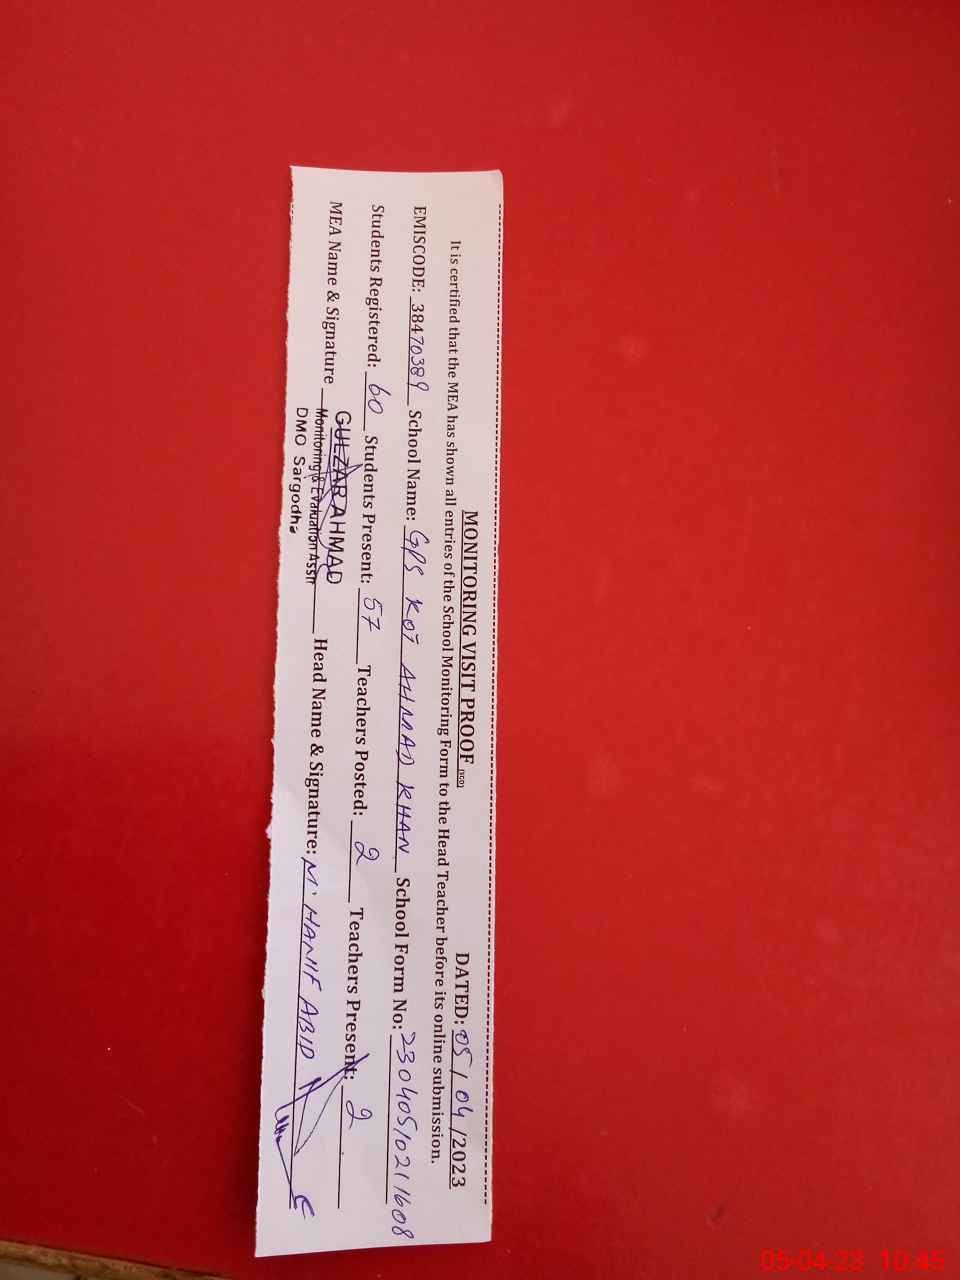 MONITORING VISIT PROOF (SGD) DATED: 05 / 04 /2023
It is certified that the MEA has shown all entries of the School Monitoring Form to the Head Teacher before its online submission.
EMISCODE: 38470389 School Name: GPS KOT AHMAD KHAN School Form No: 23040510211608
Students Registered: 60 Students Present: 57 Teachers Posted: 2 Teachers Present: 2
MEA Name & Signature GULZAR AHMAD Head Name & Signature: M. HANIF ABID
Monitoring & Evaluation Asstt
DMO Sargodha
05-04-23 10:45